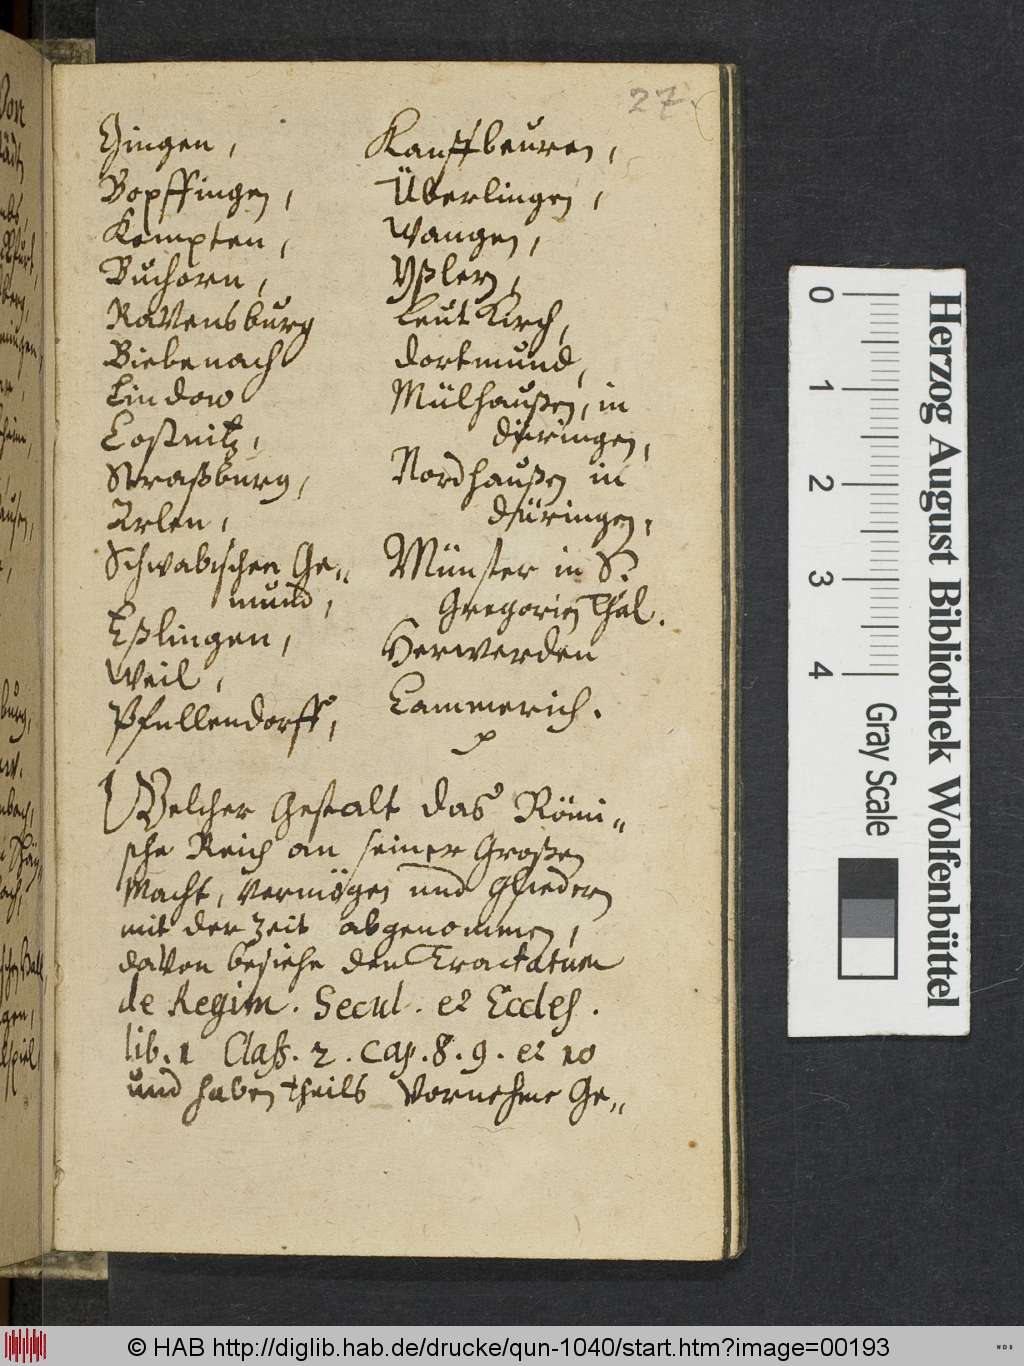 27.
Gingen,
Bopffingen,
Kempten,
Buchorn,
Ravensburg
Biebenach
Lindow
Costnitz,
Straßburg,
Arlen,
Schwabischen Ge„
mund,
Eßlingen,
Weil,
Pfullendorff,
Kauffbeuren,
Überlingen,
Wangen,
Yßlen,
Leutkirch,
dortmund,
Mülhaußen, in
düringen,
Nordhaußen in
düringen,
Münster in S.
Gregorien Thal.
Herwerden
Cammerich.
Welcher Gestalt das Römi„
sche Reich an seiner Großen
Macht, vermögen und Gliedern
mit der Zeit abgenommen,
davon besiehe den Tractatum
de Regim. Secul. et Eccles.
lib. 1 Claß. 2. Cap. 8. 9. et 10
und haben theils vornehme Ge„
0
1
2
3
4
Gray Scale
Herzog August Bibliothek Wolfenbüttel
© HAB http://diglib.hab.de/drucke/qun-1040/start.htm?image=00193